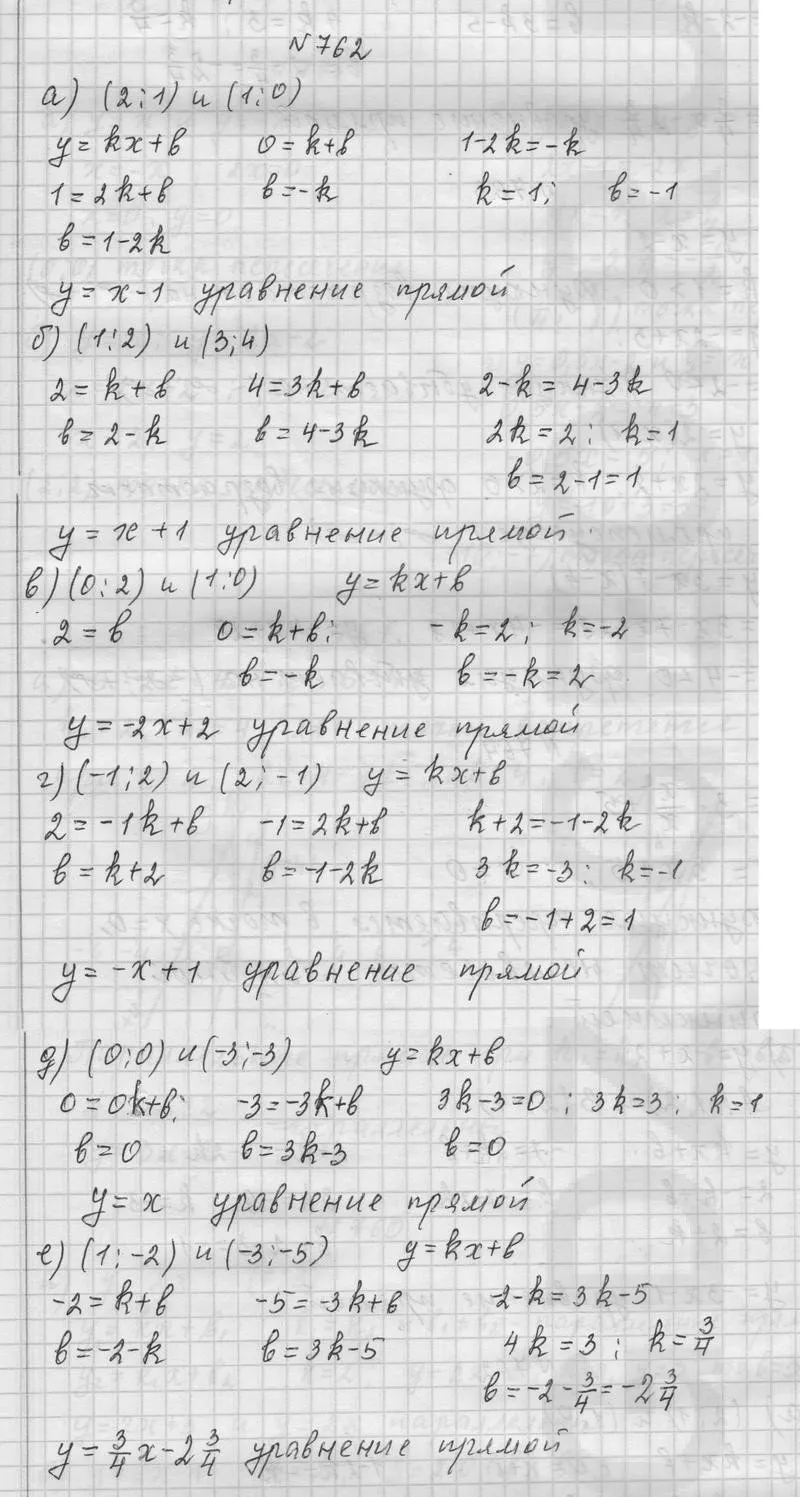 №762
а) (2;1) и (1;0)
y = kx+b 0 = k+b 1-2k=-k
1=2k+b b=-k k=1; b=-1
b=1-2k
y = x-1 уравнение прямой
б) (1;2) и (3;4)
2 = k+b 4=3k+b 2-k = 4-3k
b=2-k b=4-3k 2k=2; k=1
b=2-1=1
y = x+1 уравнение прямой
в) (0;2) и (1;0) y=kx+b
2=b 0=k+b; -k=2; k=-2
b=-k b=-k=2
y=-2x+2 уравнение прямой
г) (-1;2) и (2;-1) y=kx+b
2=-1k+b -1=2k+b k+2=-1-2k
b=k+2 b=-1-2k 3k=-3; k=-1
b=-1+2=1
y=-x+1 уравнение прямой
д) (0;0) и (-3;-3) y=kx+b
0=0k+b; -3=-3k+b 3k-3=0; 3k=3; k=1
b=0 b=3k-3 b=0
y=x уравнение прямой
е) (1;-2) и (-3;-5) y=kx+b
-2=k+b -5=-3k+b -2-k=3k-5
b=-2-k b=3k-5 4k=3; k=3/4
b=-2-3/4=-2 3/4
y=3/4x-2 3/4 уравнение прямой